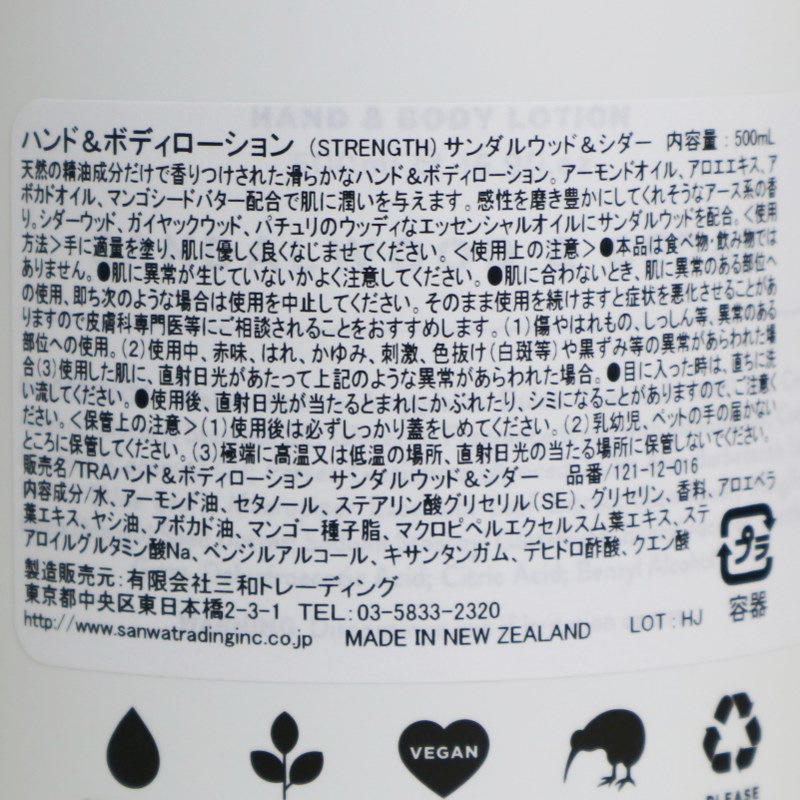 HAND & BODY LOTION
ハンド&ボディローション (STRENGTH) サンダルウッド&シダー 内容量:500mL
天然の精油成分だけで香りつけされた滑らかなハンド&ボディローション。アーモンドオイル、アロエエキス、ア
ボカドオイル、マンゴシードバター配合で肌に潤いを与えます。感性を磨き豊かにしてくれそうなアース系の香
り。シダーウッド、ガイヤックウッド、パチュリのウッディなエッセンシャルオイルにサンダルウッドを配合。<使用
方法>手に適量を塗り、肌に優しく良くなじませてください。<使用上の注意>●本品は食べ物・飲み物では
ありません。●肌に異常が生じていないかよく注意してください。●肌に合わないとき、肌に異常のある部位へ
の使用、即ち次のような場合は使用を中止してください。そのまま使用を続けますと症状を悪化させることがあ
りますので皮膚科専門医等にご相談されることをおすすめします。(1)傷やはれもの、しっしん等、異常のある
部位への使用。(2)使用中、赤味、はれ、かゆみ、刺激、色抜け(白斑等)や黒ずみ等の異常があらわれた場
合(3)使用した肌に、直射日光があたって上記のような異常があらわれた場合。●目に入った時は、直ちに洗
い流してください。●使用後、直射日光が当たるとまれにかぶれたり、シミになることがありますので、ご注意く
ださい。<保管上の注意>(1)使用後は必ずしっかり蓋をしめてください。(2)乳幼児、ペットの手の届かない
ところに保管してください。(3)極端に高温又は低温の場所、直射日光の当たる場所に保管しないでください。
販売名/TRAハンド&ボディローション サンダルウッド&シダー 品番/121-12-016
内容成分/水、アーモンド油、セタノール、ステアリン酸グリセリル(SE)、グリセリン、香料、アロエベラ
葉エキス、ヤシ油、アボカド油、マンゴー種子脂、マクロピペルエクセルスム葉エキス、ステ
アロイルグルタミン酸Na、ベンジルアルコール、キサンタンガム、デヒドロ酢酸、クエン酸
プラ
容器
製造販売元:有限会社三和トレーディング
東京都中央区東日本橋2-3-1 TEL:03-5833-2320
http://www.sanwatradinginc.co.jp MADE IN NEW ZEALAND LOT:HJ
VEGAN
PLEASE